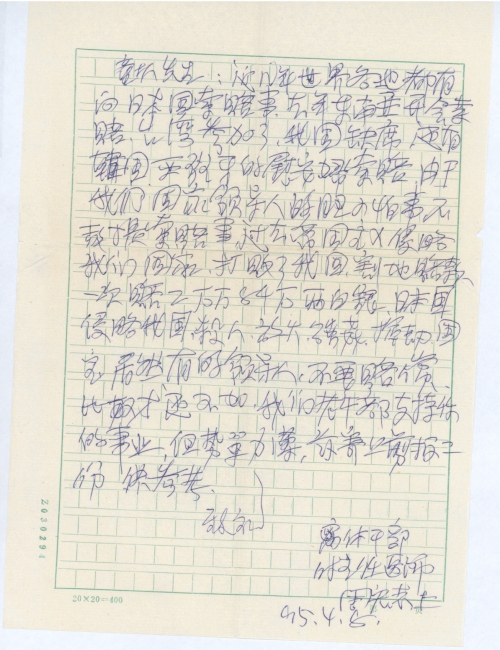 童增先生：近几年世界各地都有
向日本国索赔事，去年东南亚开会索
赔，台湾参加了，我国缺席，还有
韩国，要求日的慰安妇索赔，由于
我们国家领导人的胆小怕事不
敢提索赔事，过去帝国主义侵略
我们国家，打败了我国割地赔款
一次赔二万万84万两白银，日本
侵略我国，杀人放火强, 国
家居然有的领导人，不要赔偿，
比奴才还不如，我们老干部支持你
的事业，但势单力薄，兹寄上剪报二
份 供参考。
致礼
离休干部
主任医师
95.4.5.
20×20=400